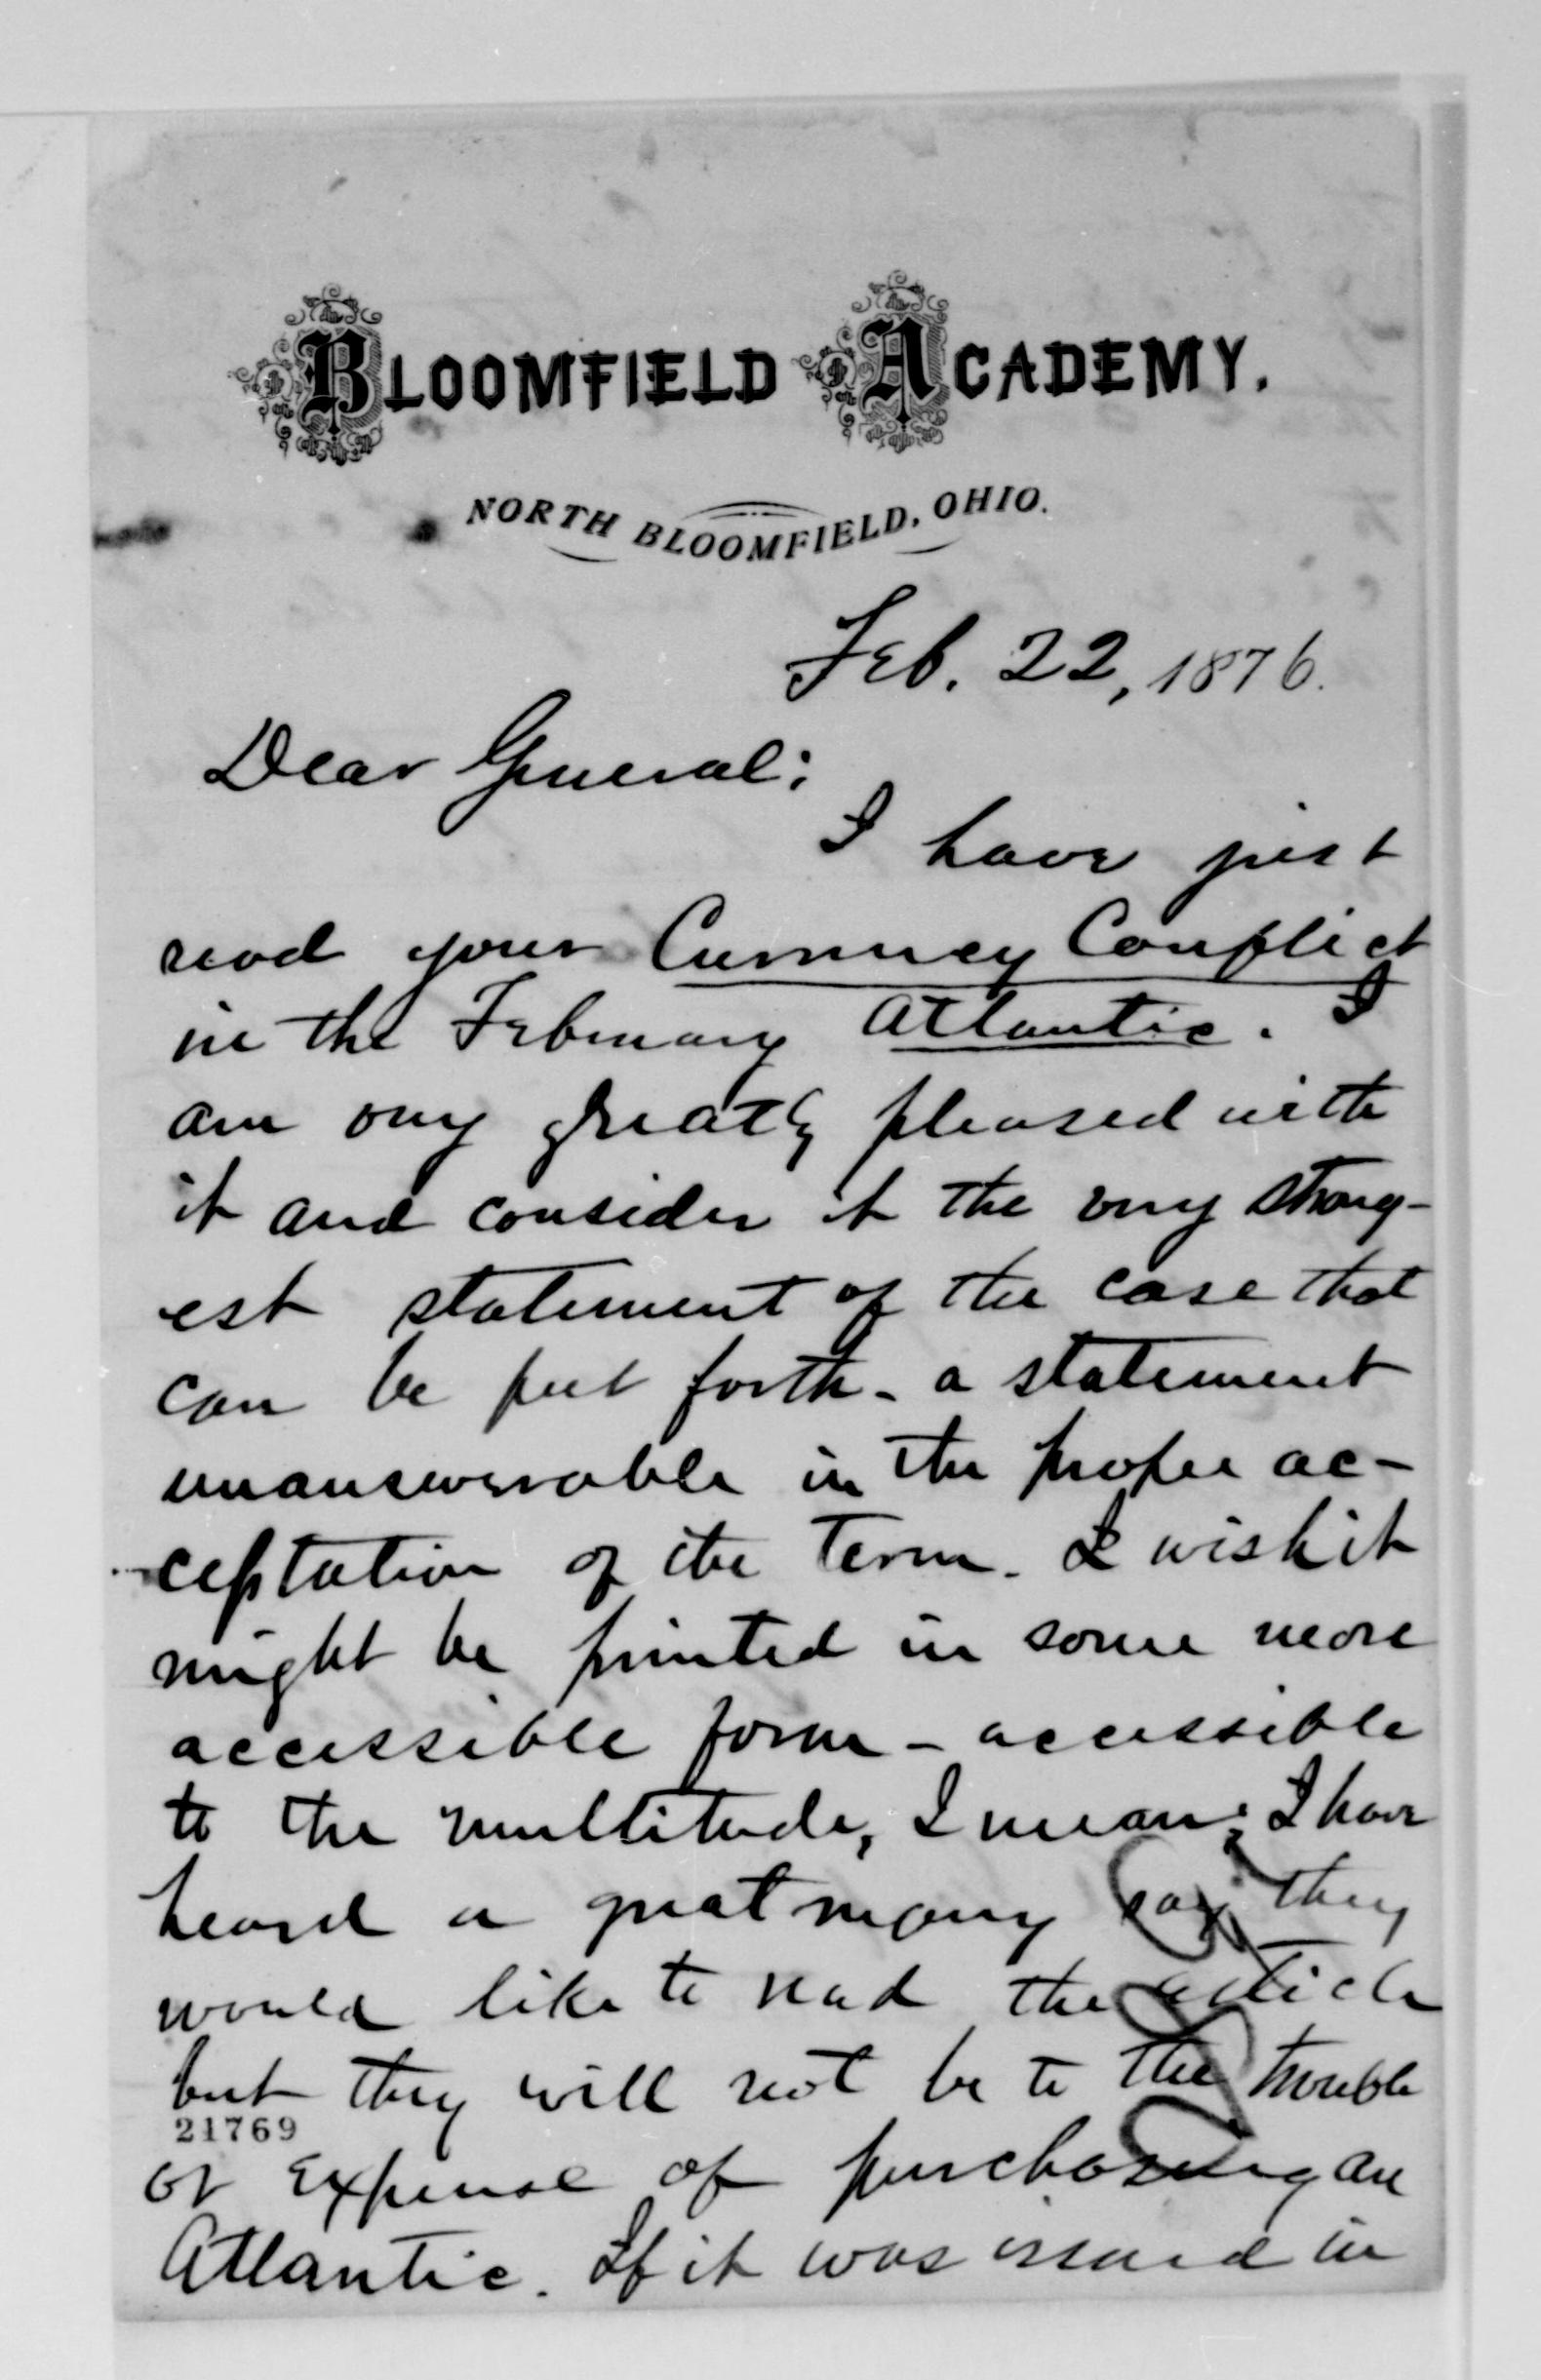 BLOOMFIELD ACADEMY.
NORTH BLOOMFIELD, OHIO.
Feb. 22, 1876.
Dear General:
I have just
read your Currency Conflict
in the February Atlantic. I
am very greatly pleased with
it and consider it the very strong-
est statement of the case that
can be put forth - a statement
unanswerable in the proper ac-
ceptation of the term. I wish it
might be printed in some more
accessible form - accessible
to the multitude, I mean; I have
heard a great many say they
would like to read the article
but they will not be to the trouble
21769
or expense of purchasing an
Atlantic. If it was issued in